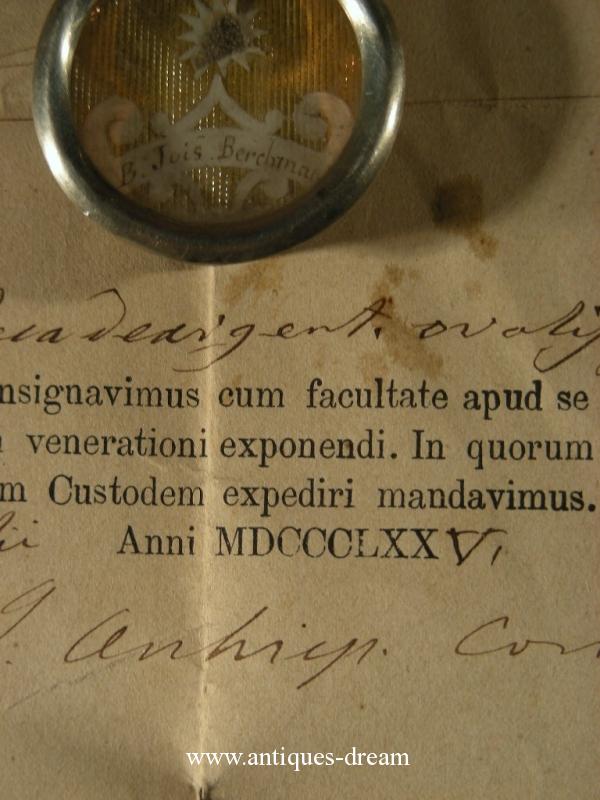 B. Jois. Berchma
theca de argent. ovalis
nsignavimus cum facultate apud se
venerationi exponendi. In quorum
m Custodem expediri mandavimus.
lii Anni MDCCCLXXV,
Anhiep. Cor
www.antiques-dream